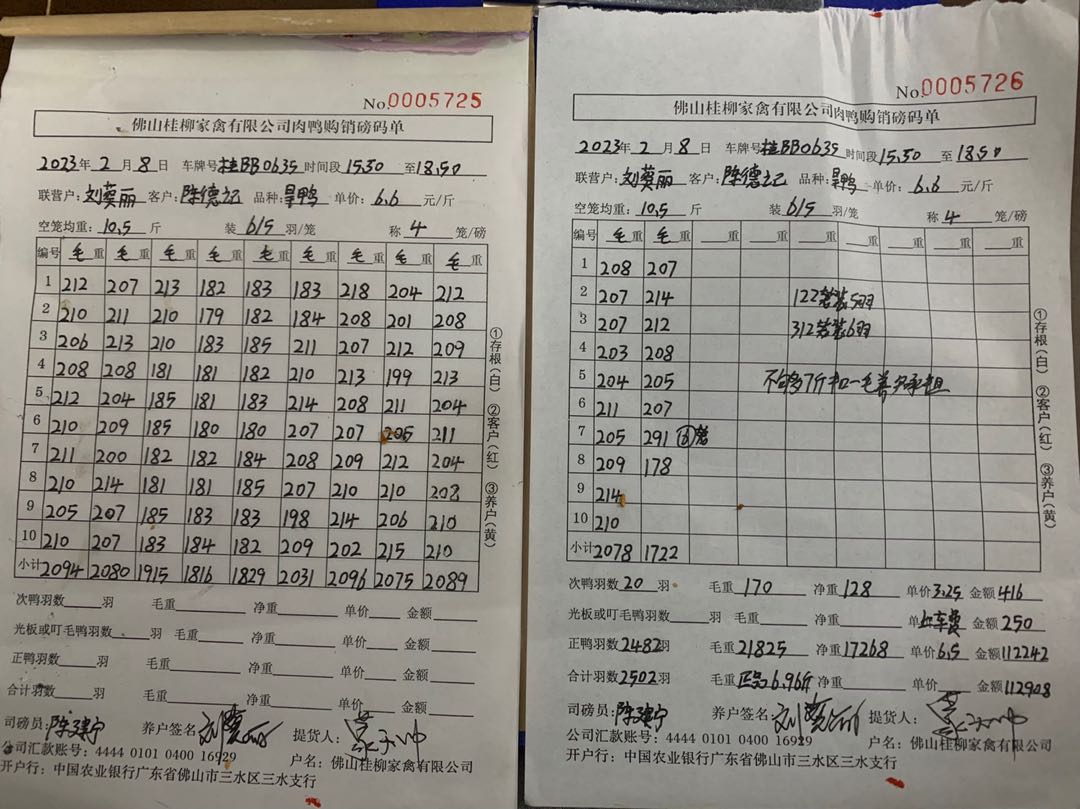 No.0005725
佛山桂柳家禽有限公司肉鸭购销磅码单
2023年 2 月 8 日 车牌号桂BB0635 时间段15.30 至18.50
联营户:刘葵丽 客户:陈德记 品种:旱鸭 单价:6.6 元/斤
空笼均重:10.5 斤 装 6/5 羽/笼 称 4 笼/磅
编号 毛重 毛重 毛重 毛重 毛重 毛重 毛重 毛重 毛重
1 212 207 213 182 183 183 218 204 212
2 210 211 210 179 182 184 208 201 208
3 206 213 210 183 185 211 207 212 209
4 208 208 181 181 182 210 213 199 213
5 212 204 185 181 183 214 208 211 204
6 210 209 185 180 180 207 207 205 211
7 211 200 182 182 184 208 209 212 204
8 210 214 181 181 185 207 210 210 208
9 205 207 185 183 183 198 214 206 210
10 210 207 183 184 182 209 202 215 210
小计 2094 2080 1915 1816 1829 2031 2096 2075 2089
①存根(白) ②客户(红) ③养户(黄)
次鸭羽数 羽 毛重 净重 单价 金额
光板或叮毛鸭羽数 羽 毛重 净重 单价 金额
正鸭羽数 羽 毛重 净重 单价 金额
合计羽数 羽 毛重 净重 单价 金额
司磅员:陈建宁 养户签名:刘葵丽 提货人:
公司汇款账号:4444 0101 0400 16929 户名:佛山桂柳家禽有限公司
开户行:中国农业银行广东省佛山市三水区三水支行
No.0005726
佛山桂柳家禽有限公司肉鸭购销磅码单
2023年 2 月 8 日 车牌号桂BB0635 时间段15.30 至18.50
联营户:刘葵丽 客户:陈德记 品种:旱鸭 单价:6.6 元/斤
空笼均重:10.5 斤 装 6/5 羽/笼 称 4 笼/磅
编号 毛重 毛重 重 重 重 重 重 重 重
1 208 207
2 207 214 122笼装5羽
3 207 212 312笼装6羽
4 203 208
5 204 205 不够7斤扣一毛养户承担
6 211 207
7 205 291 ⑥笼
8 209 178
9 214
10 210
小计 2078 1722
①存根(白) ②客户(红) ③养户(黄)
次鸭羽数 20 羽 毛重 170 净重 128 单价3.25 金额 416
光板或叮毛鸭羽数 羽 毛重 净重 单上车费 金额 250
正鸭羽数2482羽 毛重21825 净重17268 单价6.5 金额112242
合计羽数2502羽 毛重正品6.96斤 净重 单价 金额112908
司磅员:陈建宁 养户签名:刘葵丽 提货人:
公司汇款账号:4444 0101 0400 16929 户名:佛山桂柳家禽有限公司
开户行:中国农业银行广东省佛山市三水区三水支行